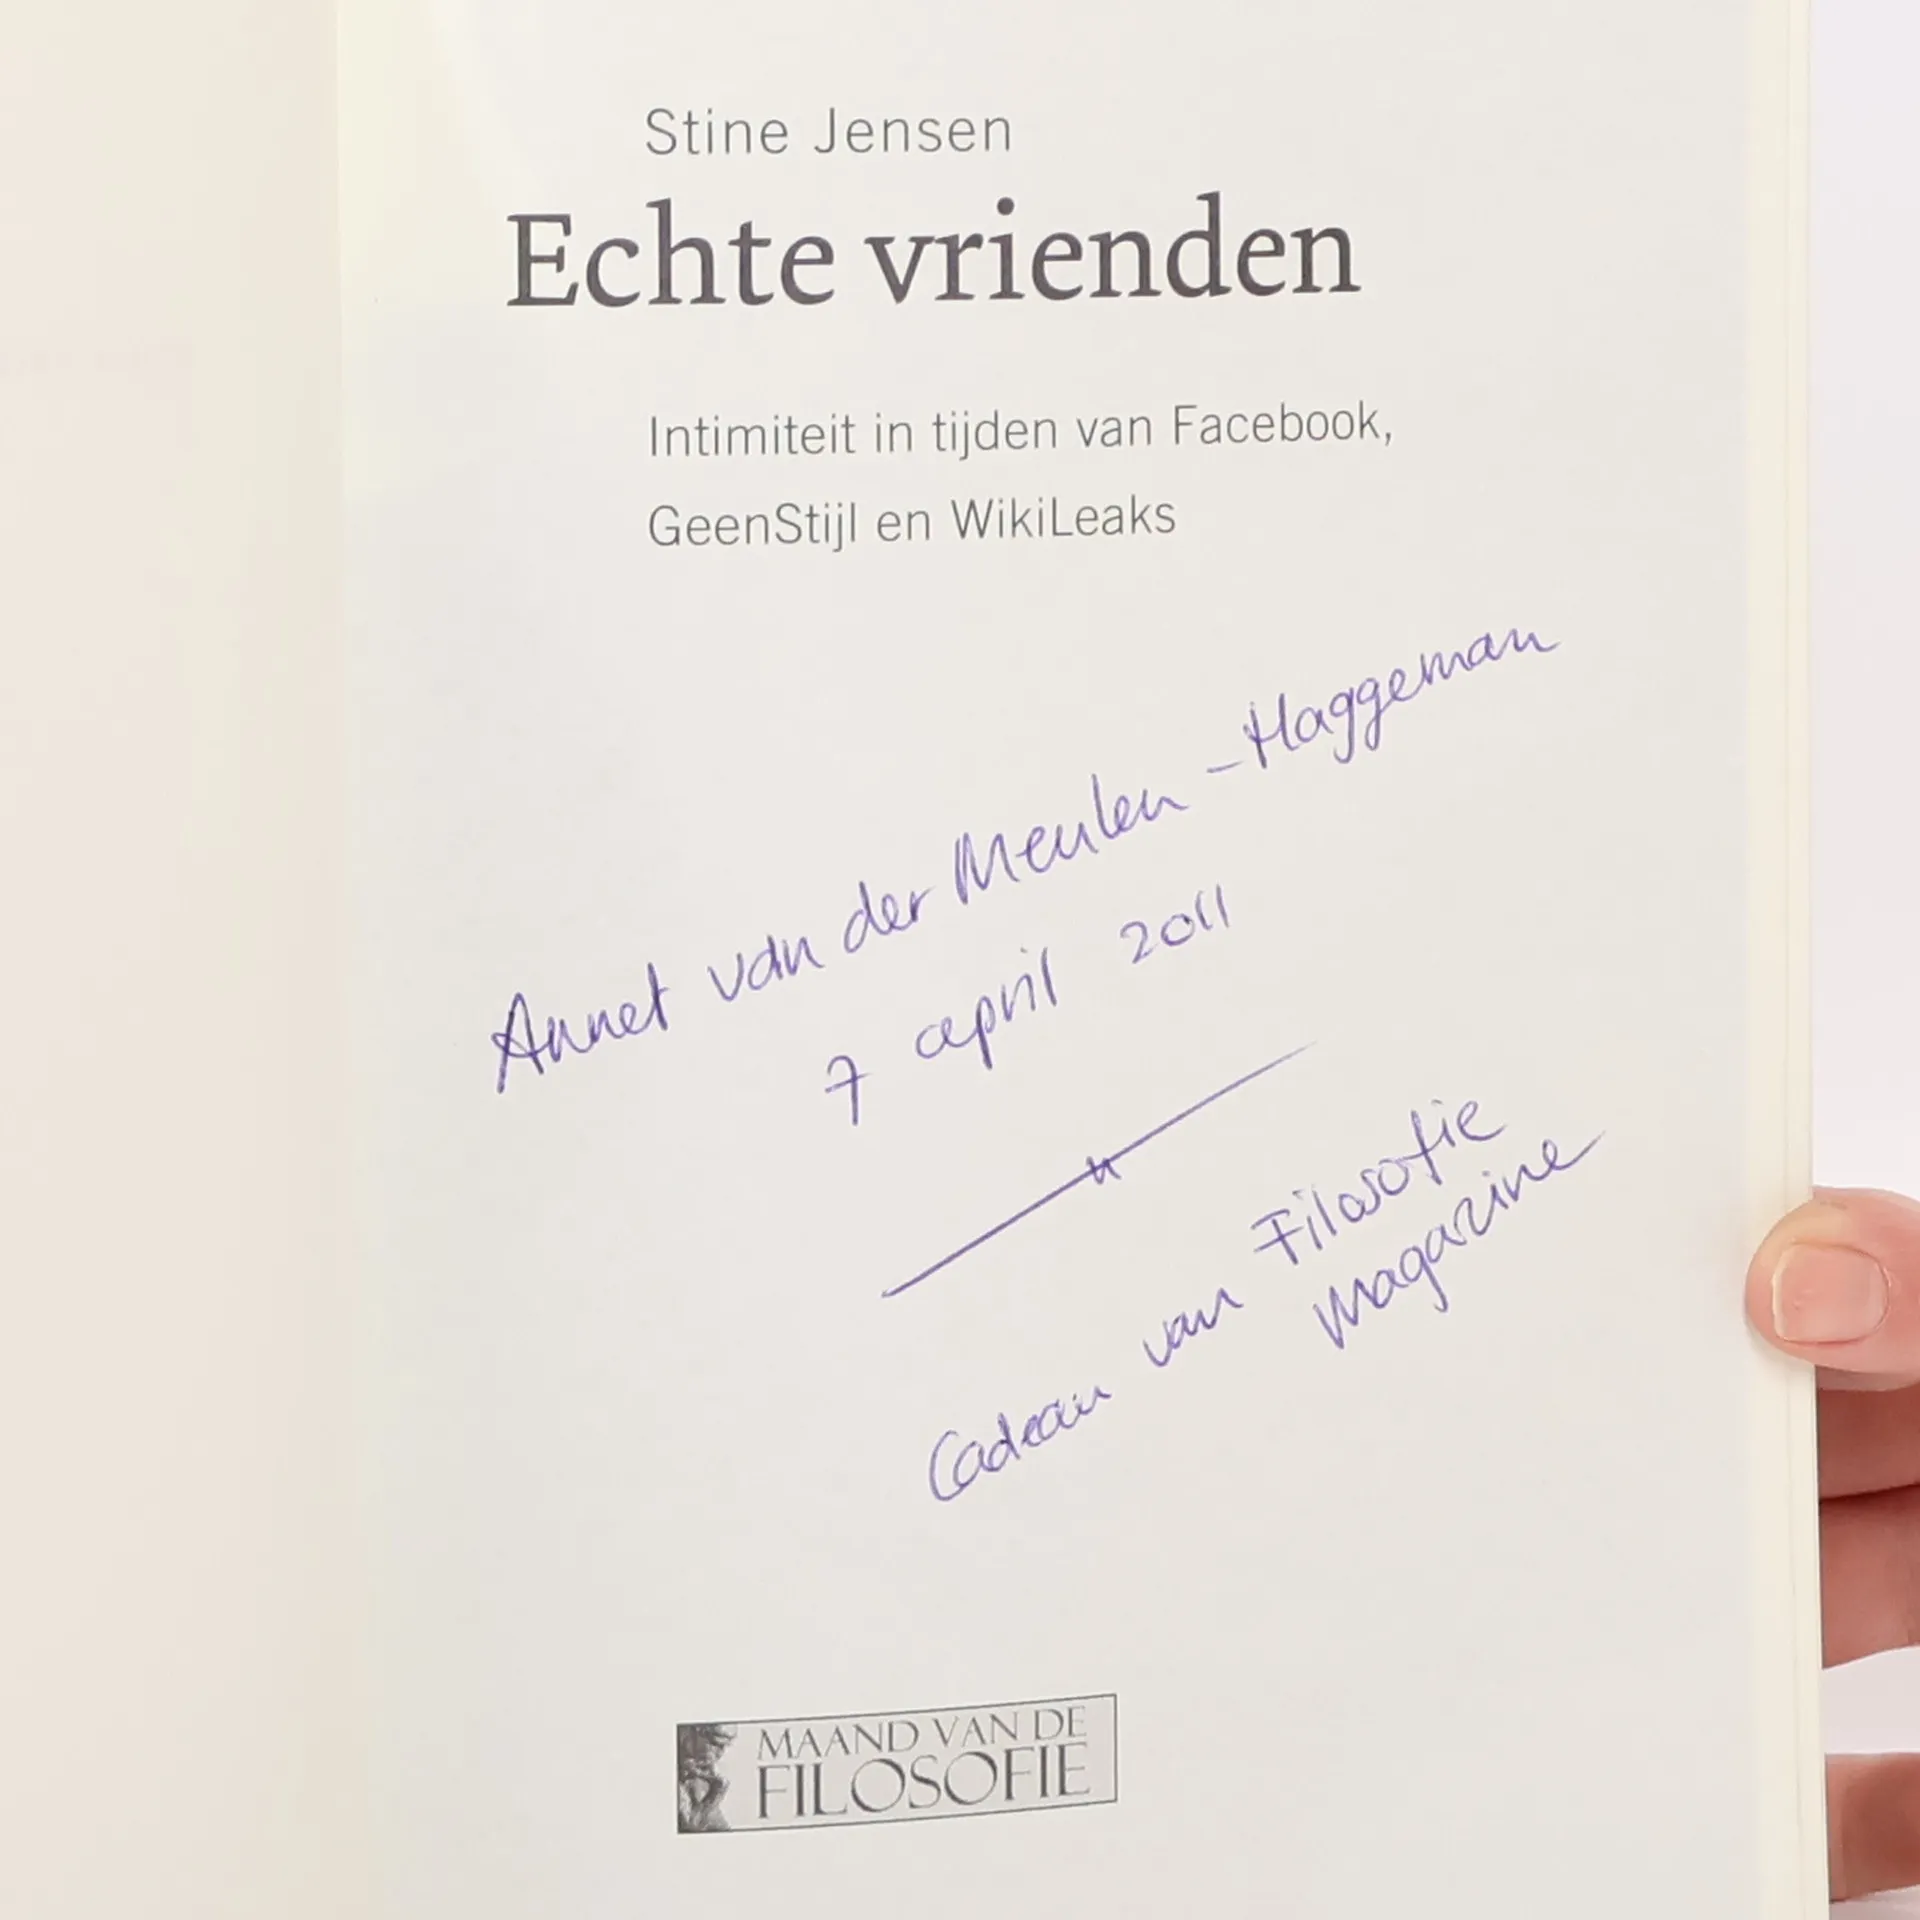 Stine Jensen
Echte vrienden
Intimiteit in tijden van Facebook,
GeenStijl en WikiLeaks
Annet van der Meulen - Haggeman
7 april 2011
Cadeau van Filosofie
Magazine
MAAND VAN DE
FILOSOFIE